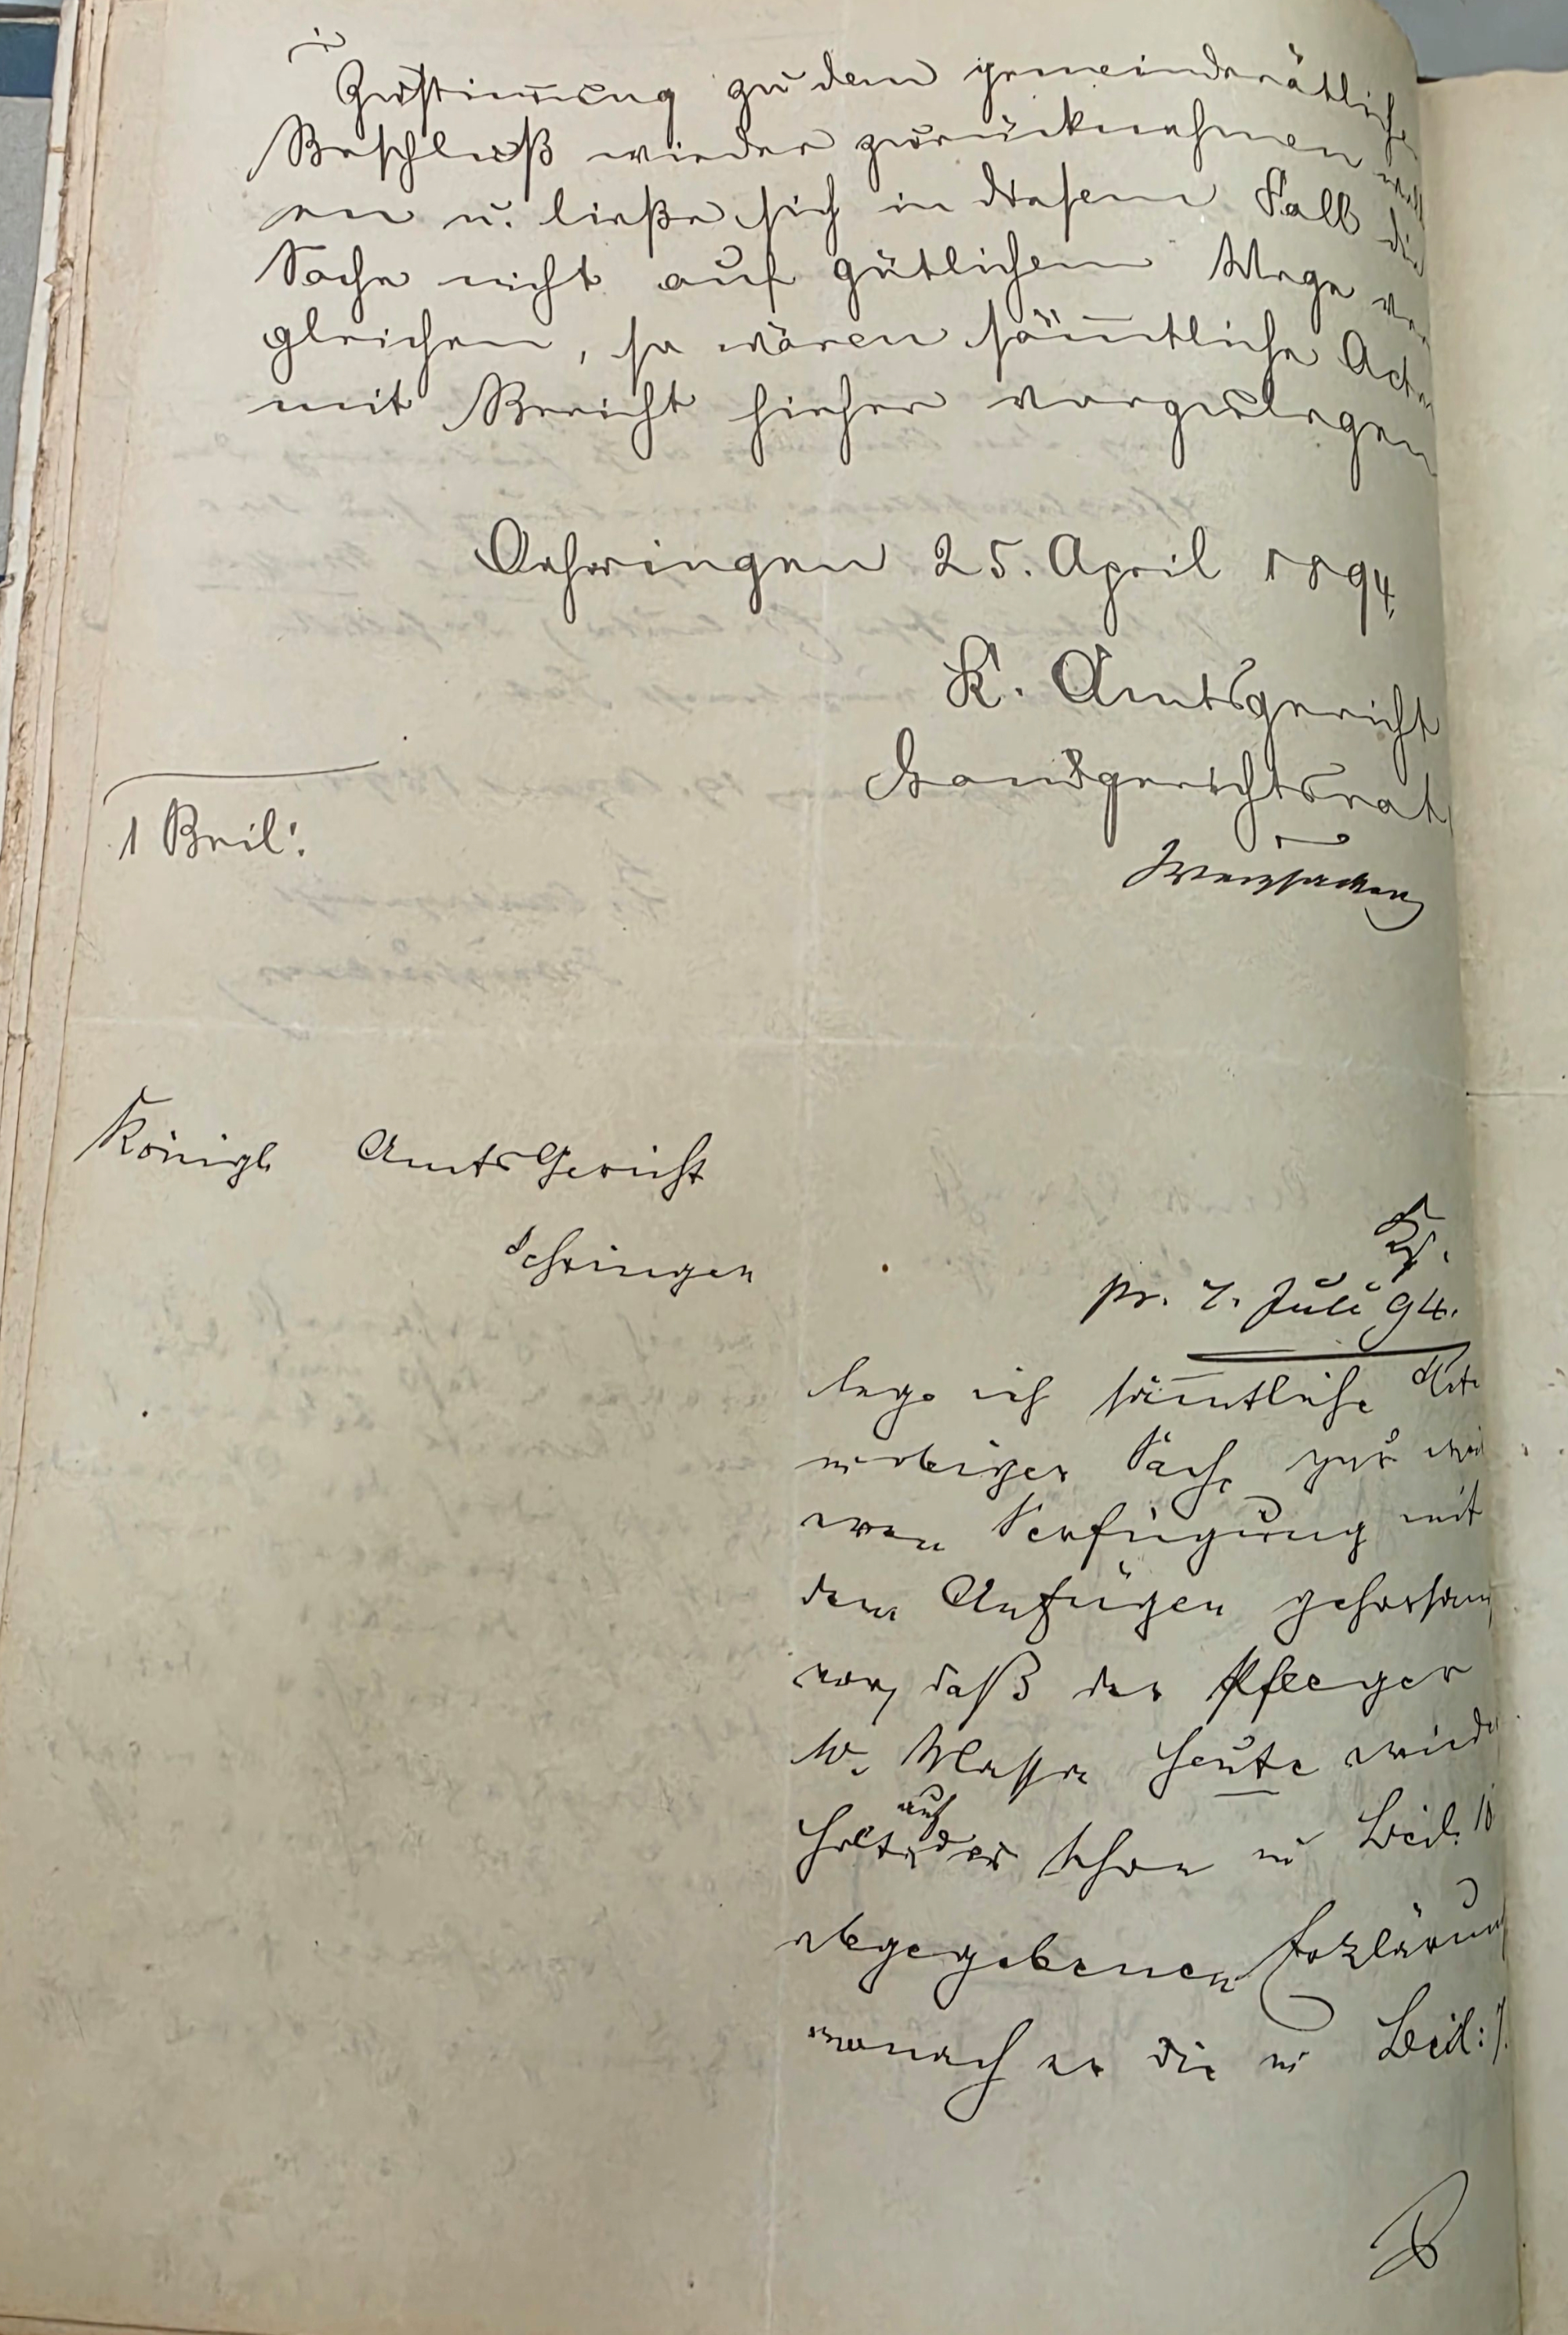 Zustimmung zu dem gemeinderätliche
Beschluß wieder zurücknehmen woll
en u. ließe sich in diesem Fall die
Sache nicht auf gütlichem Wege ver
gleichen, so wären säm̄tliche Acten
mit Bericht hieher vorzulegen
Oehringen 25. April 1894.
K. Amtsgericht
Landgerichtsrat
1 Beil:
Weizsäcker
Königl Amts Gericht
Oehringen
pr. 7. Juli 94.
lege ich säm̄tliche Akte
in obiger Sache zur wei
eren Verfügung mit
dem Anfügen gehorsam
vor, daß der Pfleger
heute wiede
holt auf der schon in Beil. 10
abgegebenen Erklärung
wonach er die in Beil: 7.